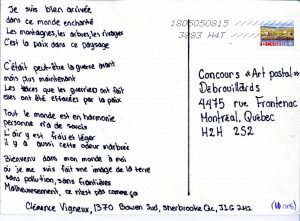 Je suis bien arrivée
dans ce monde enchanté
Les montagnes, les arbres, les rivages
C'est la paix dans ce paysage
C'était peut-être la guerre avant
mais plus maintenant
Les traces que les guerriers ont fait
elles ont été effacées par la paix
Tout le monde est en harmonie
personne n'a de soucis
L'air y est frais et léger
il y a aussi cette odeur marbrée
Bienvenu dans mon monde à moi
où je me suis fait une image de la terre
sans pollution, sans frontières
Malheureusement, ce n'est pas comme ça
1805050815
3883 H4T
Concours «Art postal»
Débrouillards
4475 rue Frontenac
Montréal, Québec
H2H 2S2
Clémence Vigneux, 1370 Bowen Sud, Sherbrooke Qc, J1G 2H1 (10 ans)